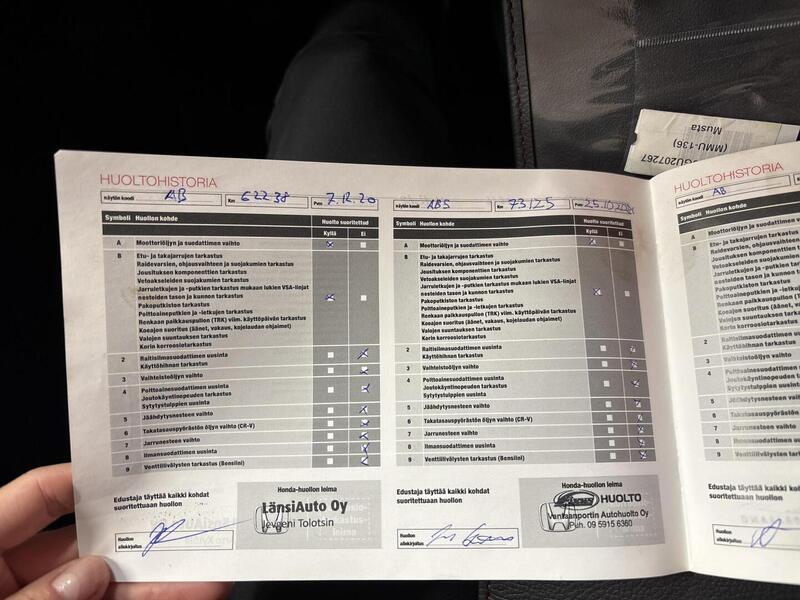 HUOLTOHISTORIA
näytön koodi AB Km 62238 Pvm 7.12.20
Symboli Huollon kohde Huolto suoritettu
Kyllä Ei
A Moottoriöljyn ja suodattimen vaihto
B Etu- ja takajarrujen tarkastus
Raidevarsien, ohjausvaihteen ja suojakumien tarkastus
Jousituksen komponenttien tarkastus
Vetoakseleiden suojakumien tarkastus
Jarruletkujen ja -putkien tarkastus mukaan lukien VSA-linjat
nesteiden tason ja kunnon tarkastus
Pakoputkiston tarkastus
Polttoaineputkien ja -letkujen tarkastus
Renkaan paikkauspullon (TRK) viim. käyttöpäivän tarkastus
Koeajon suoritus (äänet, vakaus, kojelaudan ohjaimet)
Valojen suuntauksen tarkastus
Korin korroosiotarkastus
2 Raitisilmasuodattimen uusinta
Käyttöhihnan tarkastus
3 Vaihteistoöljyn vaihto
4 Polttoainesuodattimen uusinta
Joutokäyntinopeuden tarkastus
Sytytystulppien uusinta
5 Jäähdytysnesteen vaihto
6 Takatasauspyörästön öljyn vaihto (CR-V)
7 Jarrunesteen vaihto
8 Ilmansuodattimen uusinta
9 Venttiilivälysten tarkastus (Bensiini)
Edustaja täyttää kaikki kohdat
suoritettuaan huollon
Huollon
allekirjoitus
Honda-huollon leima
LänsiAuto Oy
Jevgeni Tolotsin
näytön koodi ABS Km 73125 Pvm
Symboli Huollon kohde Huolto suoritettu
Kyllä Ei
A Moottoriöljyn ja suodattimen vaihto
B Etu- ja takajarrujen tarkastus
Raidevarsien, ohjausvaihteen ja suojakumien tarkastus
Jousituksen komponenttien tarkastus
Vetoakseleiden suojakumien tarkastus
Jarruletkujen ja -putkien tarkastus mukaan lukien VSA-linjat
nesteiden tason ja kunnon tarkastus
Pakoputkiston tarkastus
Polttoaineputkien ja -letkujen tarkastus
Renkaan paikkauspullon (TRK) viim. käyttöpäivän tarkastus
Koeajon suoritus (äänet, vakaus, kojelaudan ohjaimet)
Valojen suuntauksen tarkastus
Korin korroosiotarkastus
2 Raitisilmasuodattimen uusinta
Käyttöhihnan tarkastus
3 Vaihteistoöljyn vaihto
4 Polttoainesuodattimen uusinta
Joutokäyntinopeuden tarkastus
Sytytystulppien uusinta
5 Jäähdytysnesteen vaihto
6 Takatasauspyörästön öljyn vaihto (CR-V)
7 Jarrunesteen vaihto
8 Ilmansuodattimen uusinta
9 Venttiilivälysten tarkastus (Bensiini)
Edustaja täyttää kaikki kohdat
suoritettuaan huollon
Huollon
allekirjoitus
Honda-huollon leima
HUOLTO
Vantaanportin Autohuolto Oy
Puh. 09 5915 6360
HUOLTOHISTORIA
näytön koodi AB
Symboli Huollon kohde
A Moottoriöljyn ja suodattimen
B Etu- ja takajarrujen tarkastus
Raidevarsien, ohjausvaihteen
Jousituksen komponenttien
Vetoakseleiden suojakumien
Jarruletkujen ja -putkien
nesteiden tason ja kunnon
Pakoputkiston tarkastus
Polttoaineputkien ja
Renkaan paikkauspullon
Koeajon suoritus (äänet,
Valojen suuntauksen
Korin korroosiotarkastus
2 Raitisilmasuodattimen
Käyttöhihnan tarkastus
3 Vaihteistoöljyn vaihto
4 Polttoainesuodattimen
Joutokäyntinopeuden
Sytytystulppien uusinta
5 Jäähdytysnesteen vaihto
6 Takatasauspyörästön
7 Jarrunesteen vaihto
8 Ilmansuodattimen
9 Venttiilivälysten
Edustaja täyttää kaikki
suoritettuaan huollon
Huollon
allekirjoitus
U207267
(MMU-136)
Musta